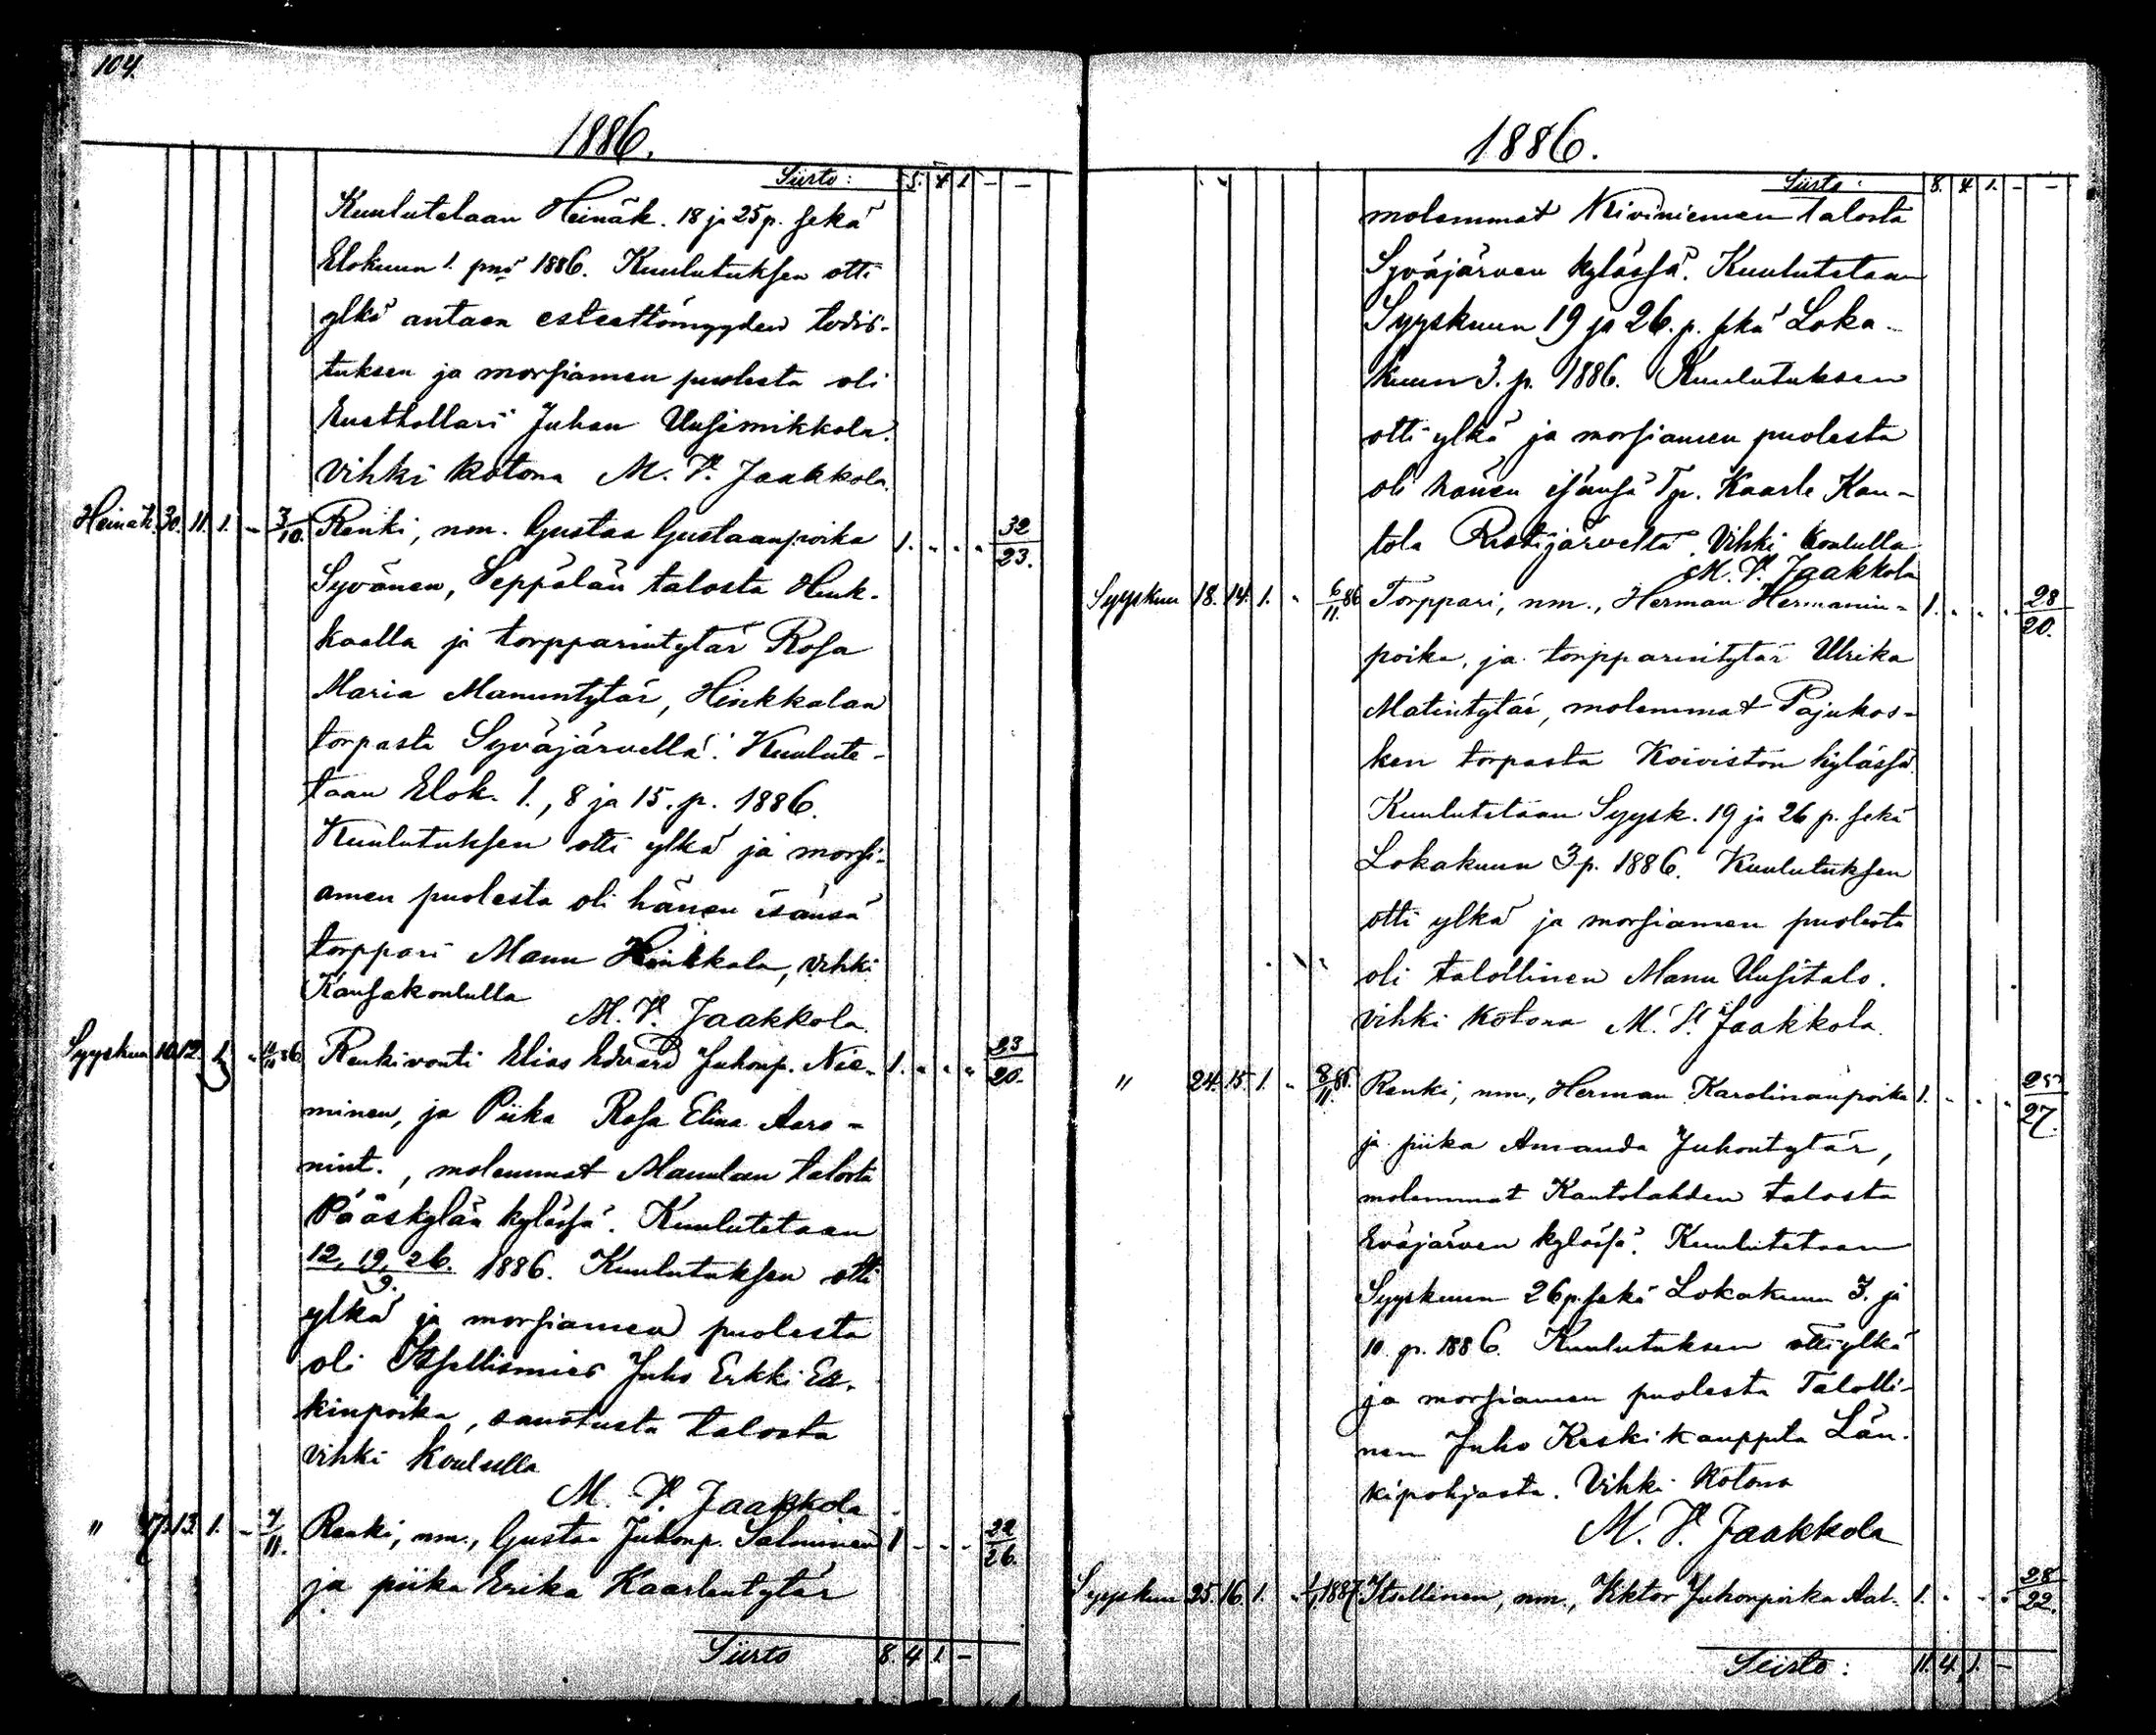 104.
1886.
Siirto: 5. 4 1. - -
Kuulutelaan Heinäk. 18 ja 25 p. sekä
Elokuun 1. pnä 1886. Kuulutuksen otti
ylkä antaen esteettömyyden todis-
tuksen ja morsiamen puolesta oli
Rusthollari Juhan Uusimikkola.
Vihki kotona M. V. Jaakkola.
Heinäk. 30. 11. 1. - 3/10. Renki, nm. Gustaa Gustaanpoika 1. " " " 32/23.
Syvänen, Seppälän talosta Hink-
kaalla ja torpparintytär Rosa
Maria Manuntytär, Hinkkalan
torpasta Syväjärvellä. Kuulute-
taan Elok. 1., 8 ja 15. p. 1886.
Kuulutuksen otti ylkä ja morsi-
amen puolesta oli hänen isänsä
torppari Manu Hinkkala, vihki
Kansakoululla
M. V. Jaakkola.
Syyskuu 10. 12. 1. " /10 86. Renkivouti Elias Edvard Juhonp. Nie- 1. " " " 23/20.
minen, ja Piika Rosa Elina Aaro-
nint., molemmat Mannlan talosta
Pääskylän kylässä. Kuulutetaan
12, 19, 26./9. 1886. Kuulutuksen otti
ylkä ja morsiamen puolesta
oli Itsellismies Juho Erkki Er-
kinpoika, sanotusta talosta
vihki koululla
M. V. Jaakkola
" 17. 13. 1. - 7/11. Renki, nm., Gustaa Juhonp. Salminen 1 - - - 22/26.
ja piika Erika Kaarlentytär
Siirto 8. 4. 1. -
1886.
Siirto: 8. 4 1. - -
molemmat Kiviniemen talosta
Syväjärven kylässä. Kuulutetaan
Syyskuun 19 ja 26. p. sekä Loka-
kuun 3. p. 1886. Kuulutuksen
otti ylkä ja morsiamen puolesta
oli hänen isänsä Tp. Kaarle Kan-
tola Ristijärveltä. Vihki koululla
M. V. Jaakkola
Syyskuu 18. 14. 1. " 6/11. 86 Torppari, nm., Herman Hermanin- 1. " " " 28/20.
poika, ja torpparintytär Ulrika
Matintytär, molemmat Pajukos-
ken torpasta Koiviston kylässä.
Kuulutetaan Syysk. 19 ja 26 p. sekä
Lokakuun 3 p. 1886. Kuulutuksen
otti ylkä ja morsiamen puolesta
oli talollinen Manu Uusitalo.
vihki kotona M. V. Jaakkola.
" 24. 15. 1. " 8/11. 86. Renki, nm., Herman Karolinanpoika 1. " " " /27.
ja piika Amanda Juhontytär,
molemmat Kantolahden talosta
Eväjärven kylässä. Kuulutetaan
Syyskuun 26 p. sekä Lokakuun 3. ja
10. p. 1886. Kuulutuksen otti ylkä
ja morsiamen puolesta Talolli-
nen Juho Keskikauppila Län-
kipohjasta. Vihki kotona
M. V. Jaakkola
Syyskuu 25. 16. 1. " 1/1. 1887 Itsellinen, nm., Viktor Juhonpoika Aal- 1. " " " 28/22.
Siirto: 11. 4. 1. -